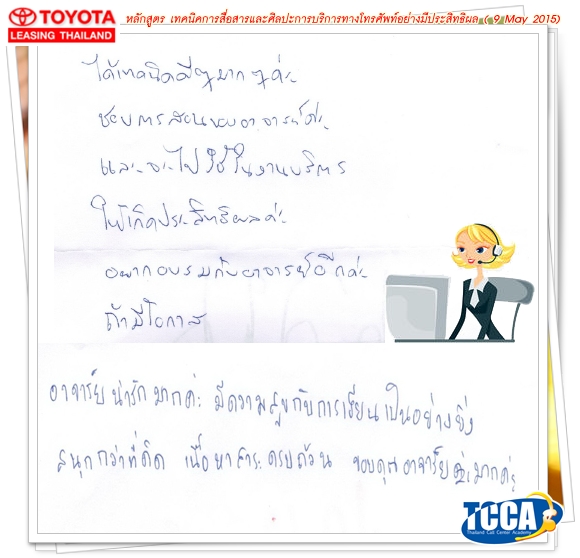 TOYOTA
LEASING THAILAND
หลักสูตร เทคนิคการสื่อสารและศิลปะการบริการทางโทรศัพท์อย่างมีประสิทธิผล ( 9 May 2015)
ได้เทคนิคดีๆมากๆค่ะ
ชอบการสอนของอาจารย์ค่ะ
และจะไปใช้ในงานบริการ
ให้เกิดประสิทธิผลค่ะ
อยากอบรมกับอาจารย์อีกค่ะ
ถ้ามีโอกาส
อาจารย์น่ารักมากค่ะ มีความสุขกับการเรียนเป็นอย่างยิ่ง
สนุกกว่าที่คิด เนื้อหาสาระครบถ้วน ขอบคุณอาจารย์มากค่ะ
TCCA
Thailand Call Center Academy